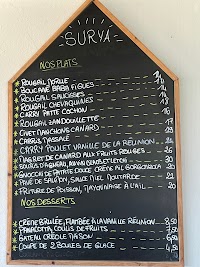 SURYA
NOS PLATS
ROUGAIL MORUE
BOUCANÉ BABA FIGUES
ROUGAIL SAUCISSES
ROUGAIL CHEVAQUINES
CARRY PATTE COCHON
ROUGAIL ZANDOUILLETTE
CIVET MANCHONS CANARD
CABRIS MASSALÉ
CARRY POULET VANILLE DE LA RÉUNION
MAGRET DE CANARD AUX FRUITS ROUGES
GNOCCHI DE PATATE DOUCE CRÈME GORGONZOLA
PAVÉ DE SAUMON, SAUCE MIEL MOUTARDE
FRITURE DE POISSON, MAYONNAISE À L'AIL 20
NOS DESSERTS
CRÈME BRULÉE, FLAMBÉE À LA VANILLE RÉUNION 7,50
PANACOTTA COULIS DE FRUITS
GATEAU CRÉOLE MAISON
COUPE DE 2 BOULES DE GLACE